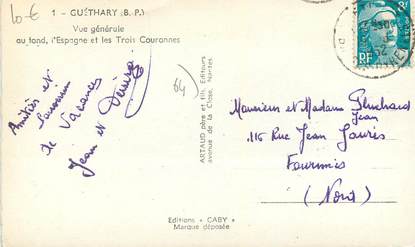 10-€
1 - GUÉTHARY (B. P.)
Vue générale
au fond, l'Espagne et les Trois Couronnes
Amitiés et
Souvenir
de Vacances
Jean et Denise
64
ARTAUD père et fils, Editeurs
avenue de la Close, Nantes
Monsieur et Madame
Jean
116 Rue Jean Jaurès
Fourmies
(Nord)
Editions " CABY "
Marque déposée
52